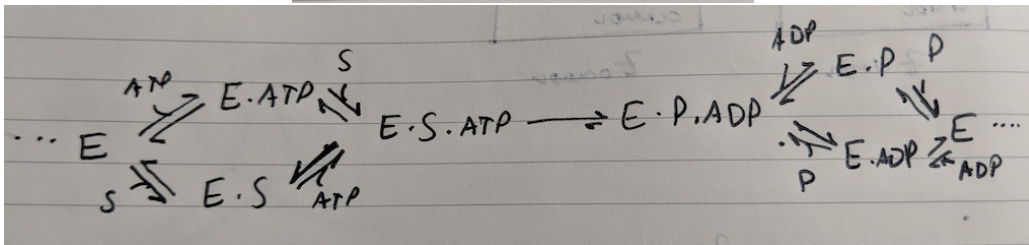 ATP E·ATP S
··· E
S E·S ATP
E·S·ATP
E·P.ADP
ADP E·P P
E ····
P E·ADP ADP